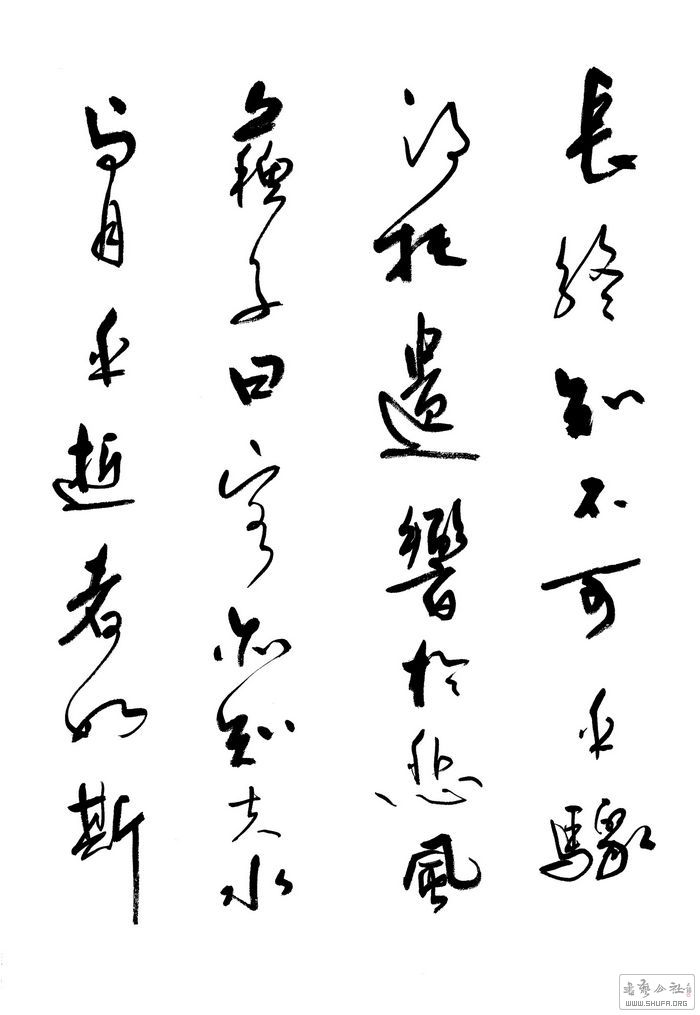 長終知不可乎驟
得托遺響於悲風
蘇子曰客亦知夫水
与月乎逝者如斯
書藝公社
WWW.SHUFA.ORG